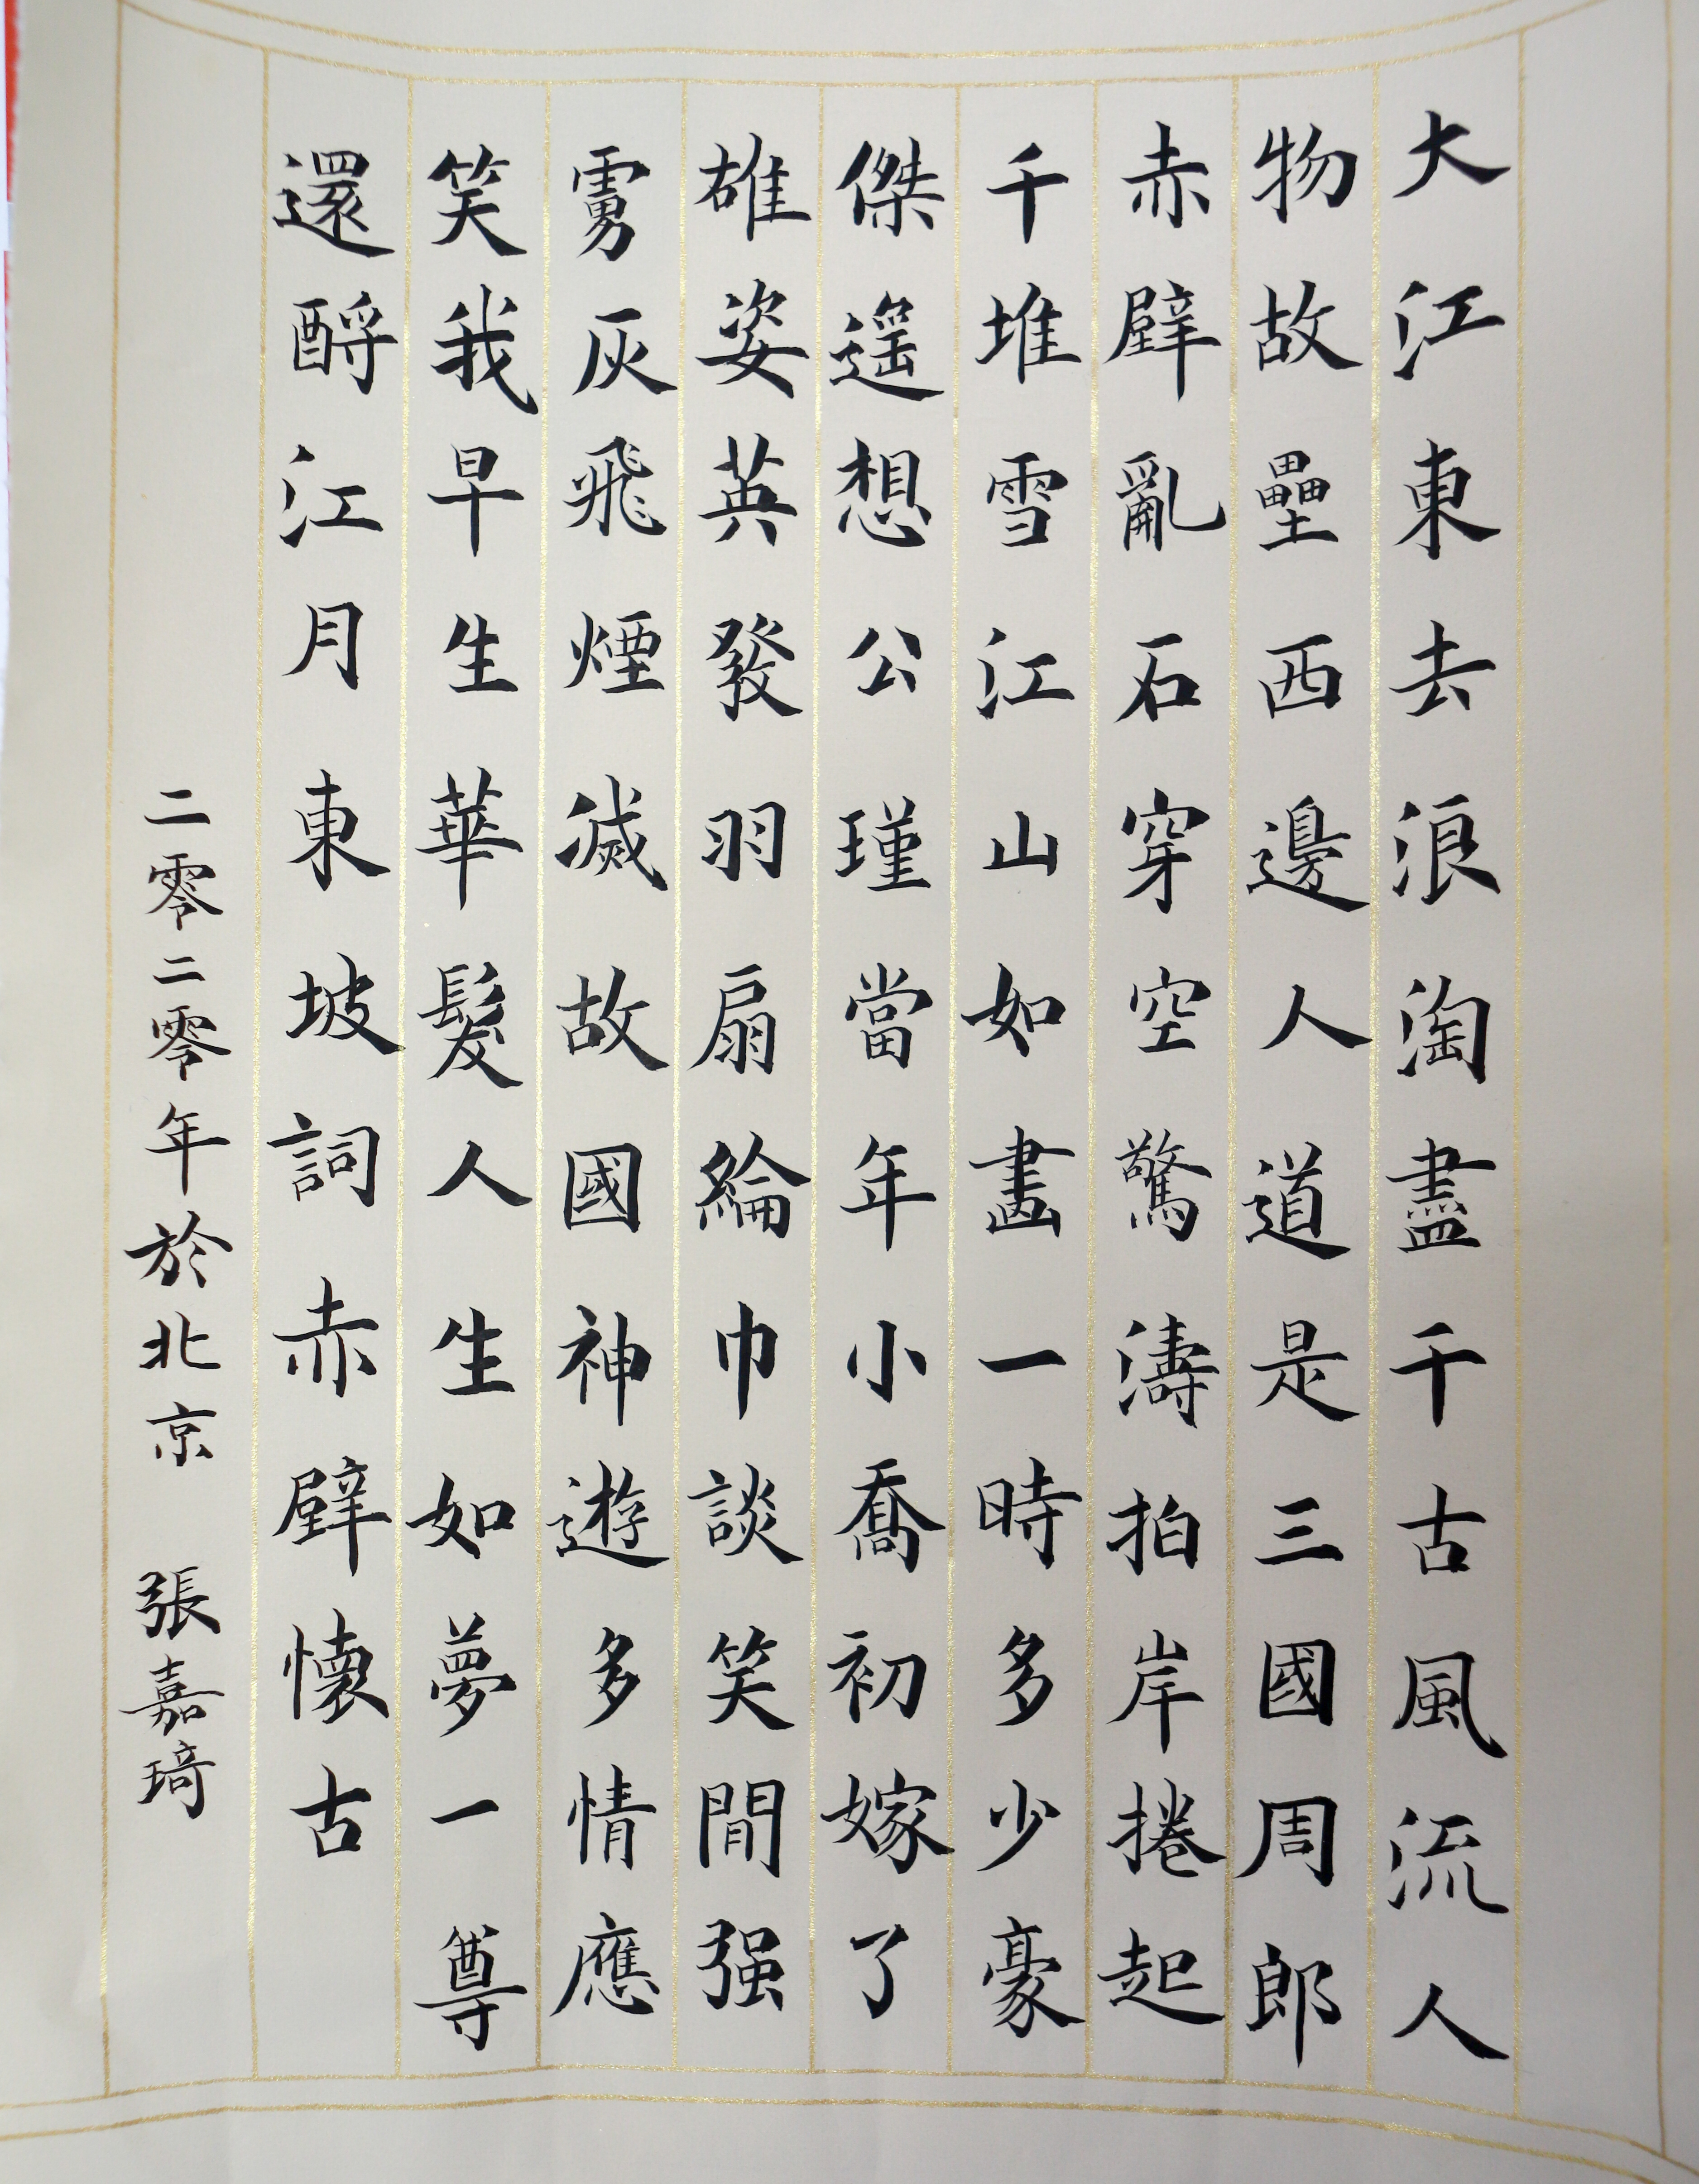 大江東去浪淘盡千古風流人
物故壘西邊人道是三國周郎
赤壁亂石穿空驚濤拍岸捲起
千堆雪江山如畫一時多少豪
傑遥想公瑾當年小喬初嫁了
雄姿英發羽扇綸巾談笑間强
虜灰飛煙滅故國神遊多情應
笑我早生華髮人生如夢一尊
還酹江月東坡詞赤壁懷古
二零二零年於北京 張嘉琦